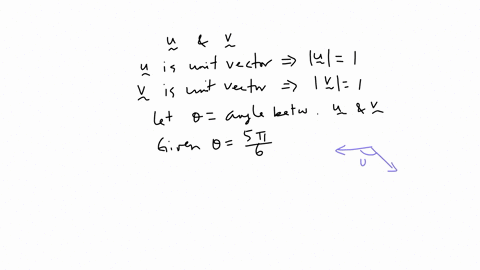 u & v
u is unit vector ⇒ |u| = 1
v is unit vector ⇒ |v| = 1
Let θ = angle betw. u & v
Given θ = 5π/6